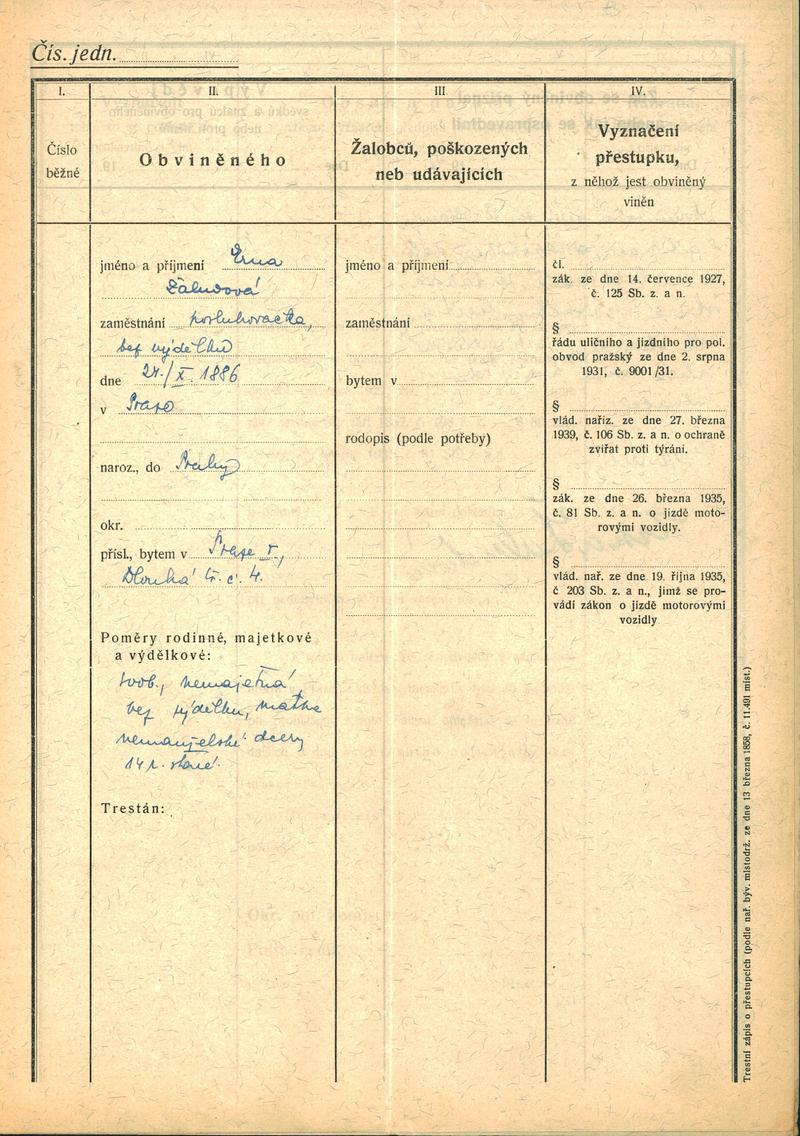 Čís. jedn.
I.
Číslo
běžné
II.
Obviněného
III
Žalobců, poškozených
neb udávajících
IV.
Vyznačení
přestupku,
z něhož jest obviněný
viněn
jméno a příjmení Erna
zaměstnání posluhovačka,
bez výdělku
dne 24./X. 1886
v Praze
naroz., do Prahy
okr.
přísl., bytem v Praze I.,
Dlouhá tř. č. 4.
Poměry rodinné, majetkové
a výdělkové:
svob., nemajetná,
bez výdělku, matka
nemanželské dcery
14 r. staré.
Trestán:
jméno a příjmení
zaměstnání
bytem v
rodopis (podle potřeby)
čl.
zák. ze dne 14. července 1927,
č. 125 Sb. z. a n.
§
řádu uličního a jízdního pro pol.
obvod pražský ze dne 2. srpna
1931, č. 9001/31.
§
vlád. nařiz. ze dne 27. března
1939, č. 106 Sb. z. a n. o ochraně
zvířat proti týrání.
§
zák. ze dne 26. března 1935,
č. 81 Sb. z. a n. o jízdě moto-
rovými vozidly.
§
vlád. nař. ze dne 19. října 1935,
č 203 Sb. z. a n., jímž se pro-
vádí zákon o jízdě motorovými
vozidly
Trestní zápis o přestupcích (podle nař. býv. místodrž. ze dne 13 března 1858, č. 11.491 míst.)